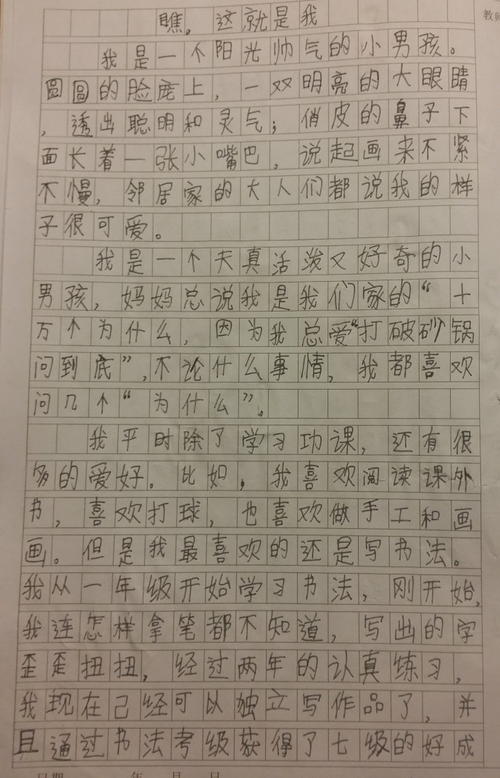 教师
瞧，这就是我
我是一个阳光帅气的小男孩。
圆圆的脸庞上，一双明亮的大眼睛
，透出聪明和灵气；俏皮的鼻子下
面长着一张小嘴巴，说起画来不紧
不慢，邻居家的大人们都说我的样
子很可爱。
我是一个天真活泼又好奇的小
男孩，妈妈总说我是我们家的“十
万个为什么，因为我总爱“打破砂锅
问到底”，不论什么事情，我都喜欢
问几个“为什么”。
我平时除了学习功课，还有很
多的爱好。比如，我喜欢阅读课外
书，喜欢打球，也喜欢做手工和画
画。但是我最喜欢的还是写书法。
我从一年级开始学习书法，刚开始，
我连怎样拿笔都不知道，写出的字
歪歪扭扭，经过两年的认真练习，
我现在已经可以独立写作品了，并
且通过书法考级获得了七级的好成
年 月 日